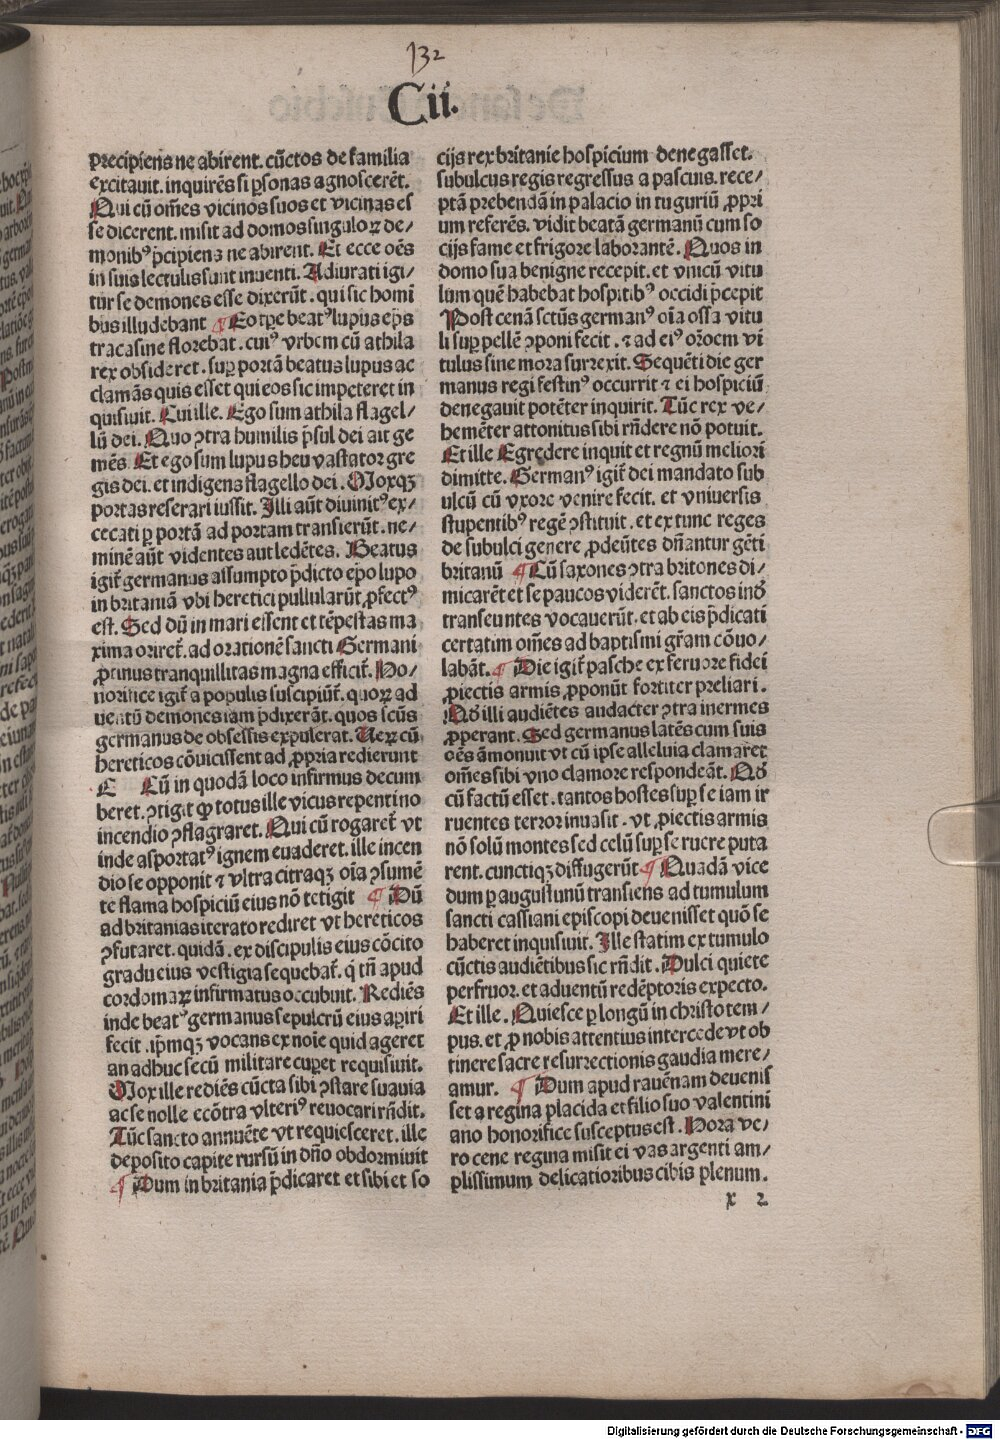 132
Cii.
precipiens ne abirent. cũctos de familia
excitauit. inquirẽs si ꝑsonas agnoscerẽt.
Qui cũ om̃es vicinos suos et vicinas es
se dicerent. misit ad domos singuloꝝ de-
monibꝰ p̃cipiens ne abirent. Et ecce oẽs
in suis lectulis sunt inuenti. Adiurati igi-
tur se demones esse dixerũt. qui sic homi
bus illudebant ¶ Eo tꝑe beatꝰ lupus ep̃s
tracasine florebat. cuiꝰ vrbem cũ athila
rex obsideret. suꝑ portã beatus lupus ac
clamãs quis esset qui eos sic impeteret in
quisiuit. Cui ille. Ego sum athila flagel-
lũ dei. Quo ꝯtra humilis p̃sul dei ait ge
mẽs. Et ego sum lupus heu vastator gre
gis dei. et indigens flagello dei. Moxqꝫ
portas reserari iussit. Illi aũt diuinitꝰ ex-
cecati ꝑ portã ad portam transierũt. ne-
minẽ aũt videntes aut ledẽtes. Beatus
igit̃ germanus assumpto p̃dicto ep̃o lupo
in britaniã vbi heretici pullularũt ꝓfectꝰ
est. Sed dũ in mari essent et tẽpestas ma
xima oriret̃. ad orationẽ sancti Germani
ꝓtinus tranquillitas magna efficit̃. Ho-
norifice igit̃ a populis suscipiũt̃. quoꝝ ad
uentũ demones iam p̃dixerãt. quos sc̃us
germanus de obsessis expulerat. Ueꝝ cũ
hereticos cõuicissent ad ꝓpria redierunt
C Cũ in quodã loco infirmus decum
beret. ꝯtigit ꝙ totus ille vicus repentino
incendio ꝯflagraret. Qui cũ rogaret̃ vt
inde asportatꝰ ignem euaderet. ille incen
dio se opponit ⁊ vltra citraqꝫ oĩa ꝯsumẽ
te flama hospiciũ eius nõ tetigit ¶ Dũ
ad britanias iterato rediret vt hereticos
ꝯfutaret. quidã. ex discipulis eius cõcito
gradu eius vestigia sequebat̃. q̇ tñ apud
cordomaꝝ infirmatus occubuit. Rediẽs
inde beatꝰ germanus sepulcrũ eius aꝑiri
fecit. ip̃mqꝫ vocans ex noĩe quid ageret
an adhuc secũ militare cuꝑet requisiuit.
Mox ille rediẽs cũcta sibi ꝯstare suauia
ac se nolle ecõtra vlteriꝰ reuocari rñdit.
Tũc sancto annuẽte vt requiesceret. ille
deposito capite rursũ in dño obdormiuit
¶ Dum in britania p̃dicaret et sibi et so
cijs rex britanie hospicium denegasset.
subulcus regis regressus a pascuis. rece-
ptã prebendã in palacio in tuguriũ ꝓpri
um referẽs. vidit beatã germanũ cum so
cijs fame et frigore laborantẽ. Quos in
domo sua benigne recepit. et vnicũ vitu
lum quẽ habebat hospitibꝰ occidi p̃cepit
Post cenã sctũs germanꝰ oĩa ossa vitu
li suꝑ pellẽ ꝯponi fecit. ⁊ ad eiꝰ or̃oem vi
tulus sine mora surrexit. Sequẽti die ger
manus regi festinꝰ occurrit ⁊ ei hospiciũ
denegauit potẽter inquirit. Tũc rex ve-
hemẽter attonitus sibi rñdere nõ potuit.
Et ille Egredere inquit et regnũ meliori
dimitte. Germanꝰ igit̃ dei mandato sub
ulcũ cũ vxore venire fecit. et vniuersis
stupentibꝰ regẽ ꝯstituit. et ex tunc reges
de subulci genere ꝓdeũtes dñantur gẽti
britanũ ¶ Cũ saxones ꝯtra britones di-
micarẽt et se paucos viderẽt. sanctos inõ
transeuntes vocauerũt. et ab eis p̃dicati
certatim om̃es ad baptismi gr̃am cõuo-
labãt. ¶ Die igit̃ pasche ex feruore fidei
ꝓiectis armis ꝓponũt fortiter preliari.
Qõ illi audiẽtes audacter ꝯtra inermes
ꝓperant. Sed germanus latẽs cum suis
oẽs ãmonuit vt cũ ipse alleluia clamaret
om̃es sibi vno clamore respondeãt. Qõ
cũ factũ esset. tantos hostes suꝑ se iam ir
ruentes terror inuasit. vt ꝓiectis armis
nõ solũ montes sed celũ suꝑ se ruere puta
rent. cunctiqꝫ diffugerũt ¶ Quadã vice
dum ꝑ augustunũ transiens ad tumulum
sancti cassiani episcopi deuenisset quõ se
haberet inquisiuit. Ille statim ex tumulo
cũctis audiẽtibus sic rñdit. Dulci quiete
perfruor. et aduentũ redẽptoris expecto.
Et ille. Quiesce ꝑ longũ in christo tem-
pus. et ꝓ nobis attentius intercede vt ob
tinere sacre resurrectionis gaudia mere-
amur. ¶ Dum apud rauẽnam deuenis
set a regina placida et filio suo valentini
ano honorifice susceptus est. Hora ve-
ro cene regina misit ei vas argenti am-
plissimum delicatioribus cibis plenum.
x 2
Digitalisierung gefördert durch die Deutsche Forschungsgemeinschaft - DFG